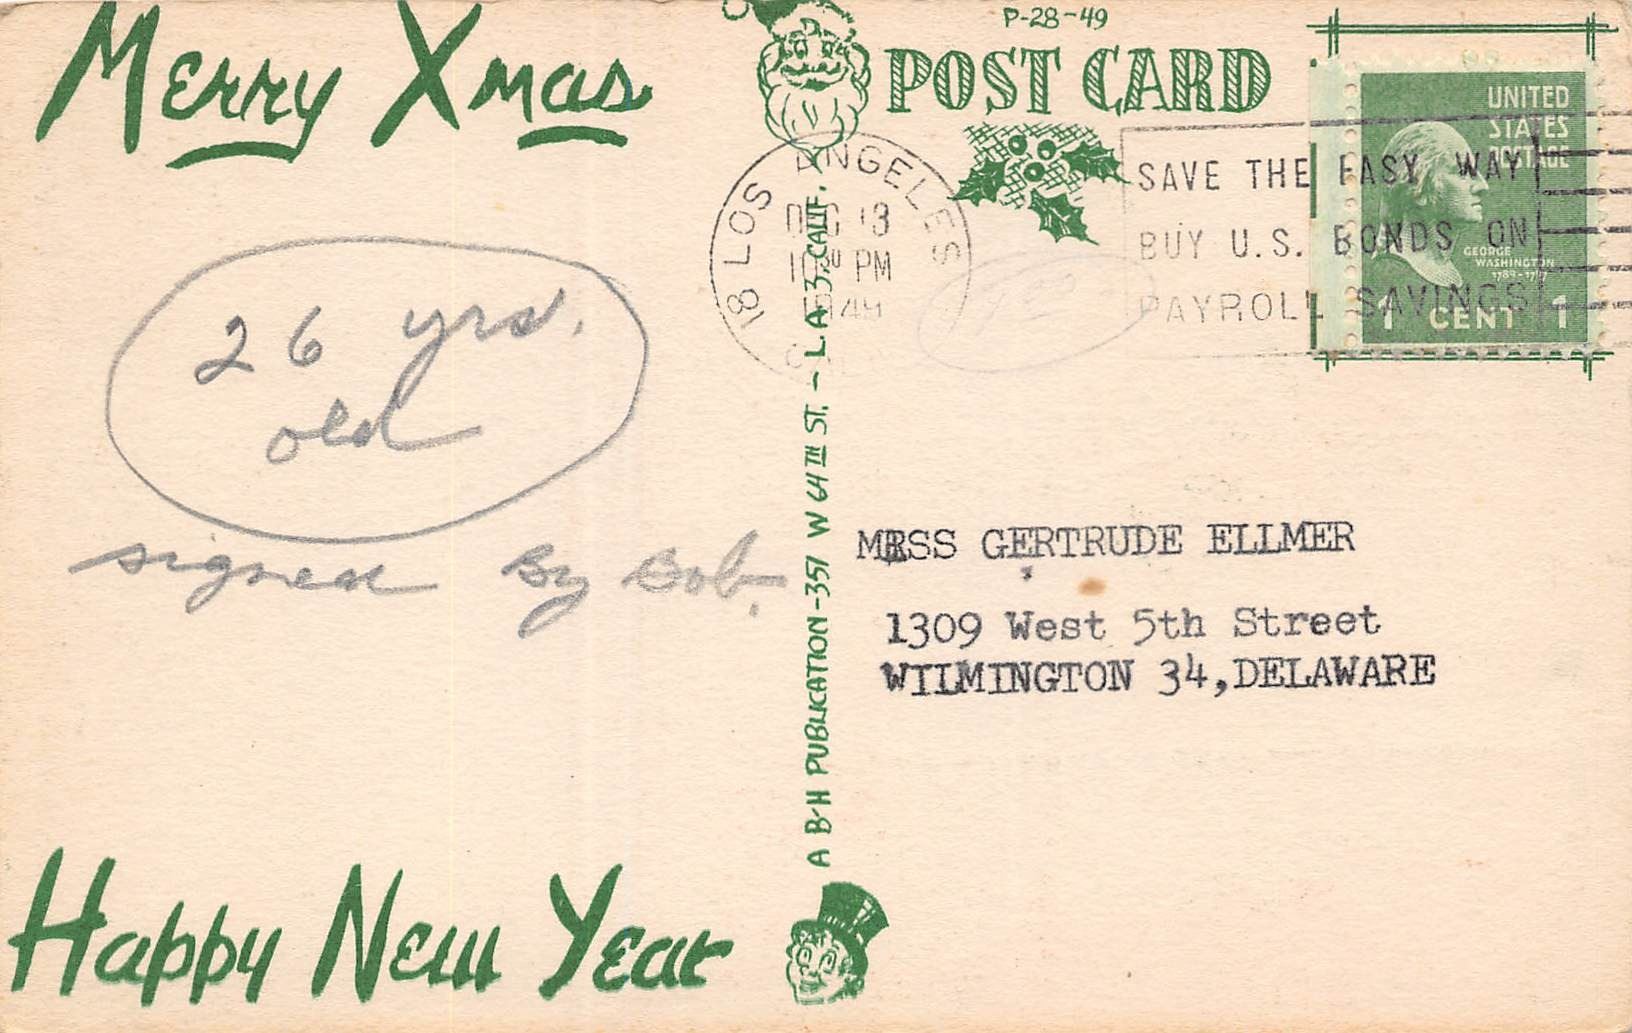 Merry Xmas
P-28-49
POST CARD
LOS ANGELES
18
DEC 13
10 30 PM
1949
SAVE THE EASY WAY
BUY U.S. BONDS ON
PAYROLL SAVINGS
UNITED
STATES
POSTAGE
GEORGE
WASHINGTON
1789-1797
1 CENT 1
26 yrs.
old
signed By Bob.
A B-H PUBLICATION-357 W 64TH ST. - L.A. 3, CALIF.
MISS GERTRUDE ELLMER
1309 West 5th Street
WILMINGTON 34, DELAWARE
Happy New Year